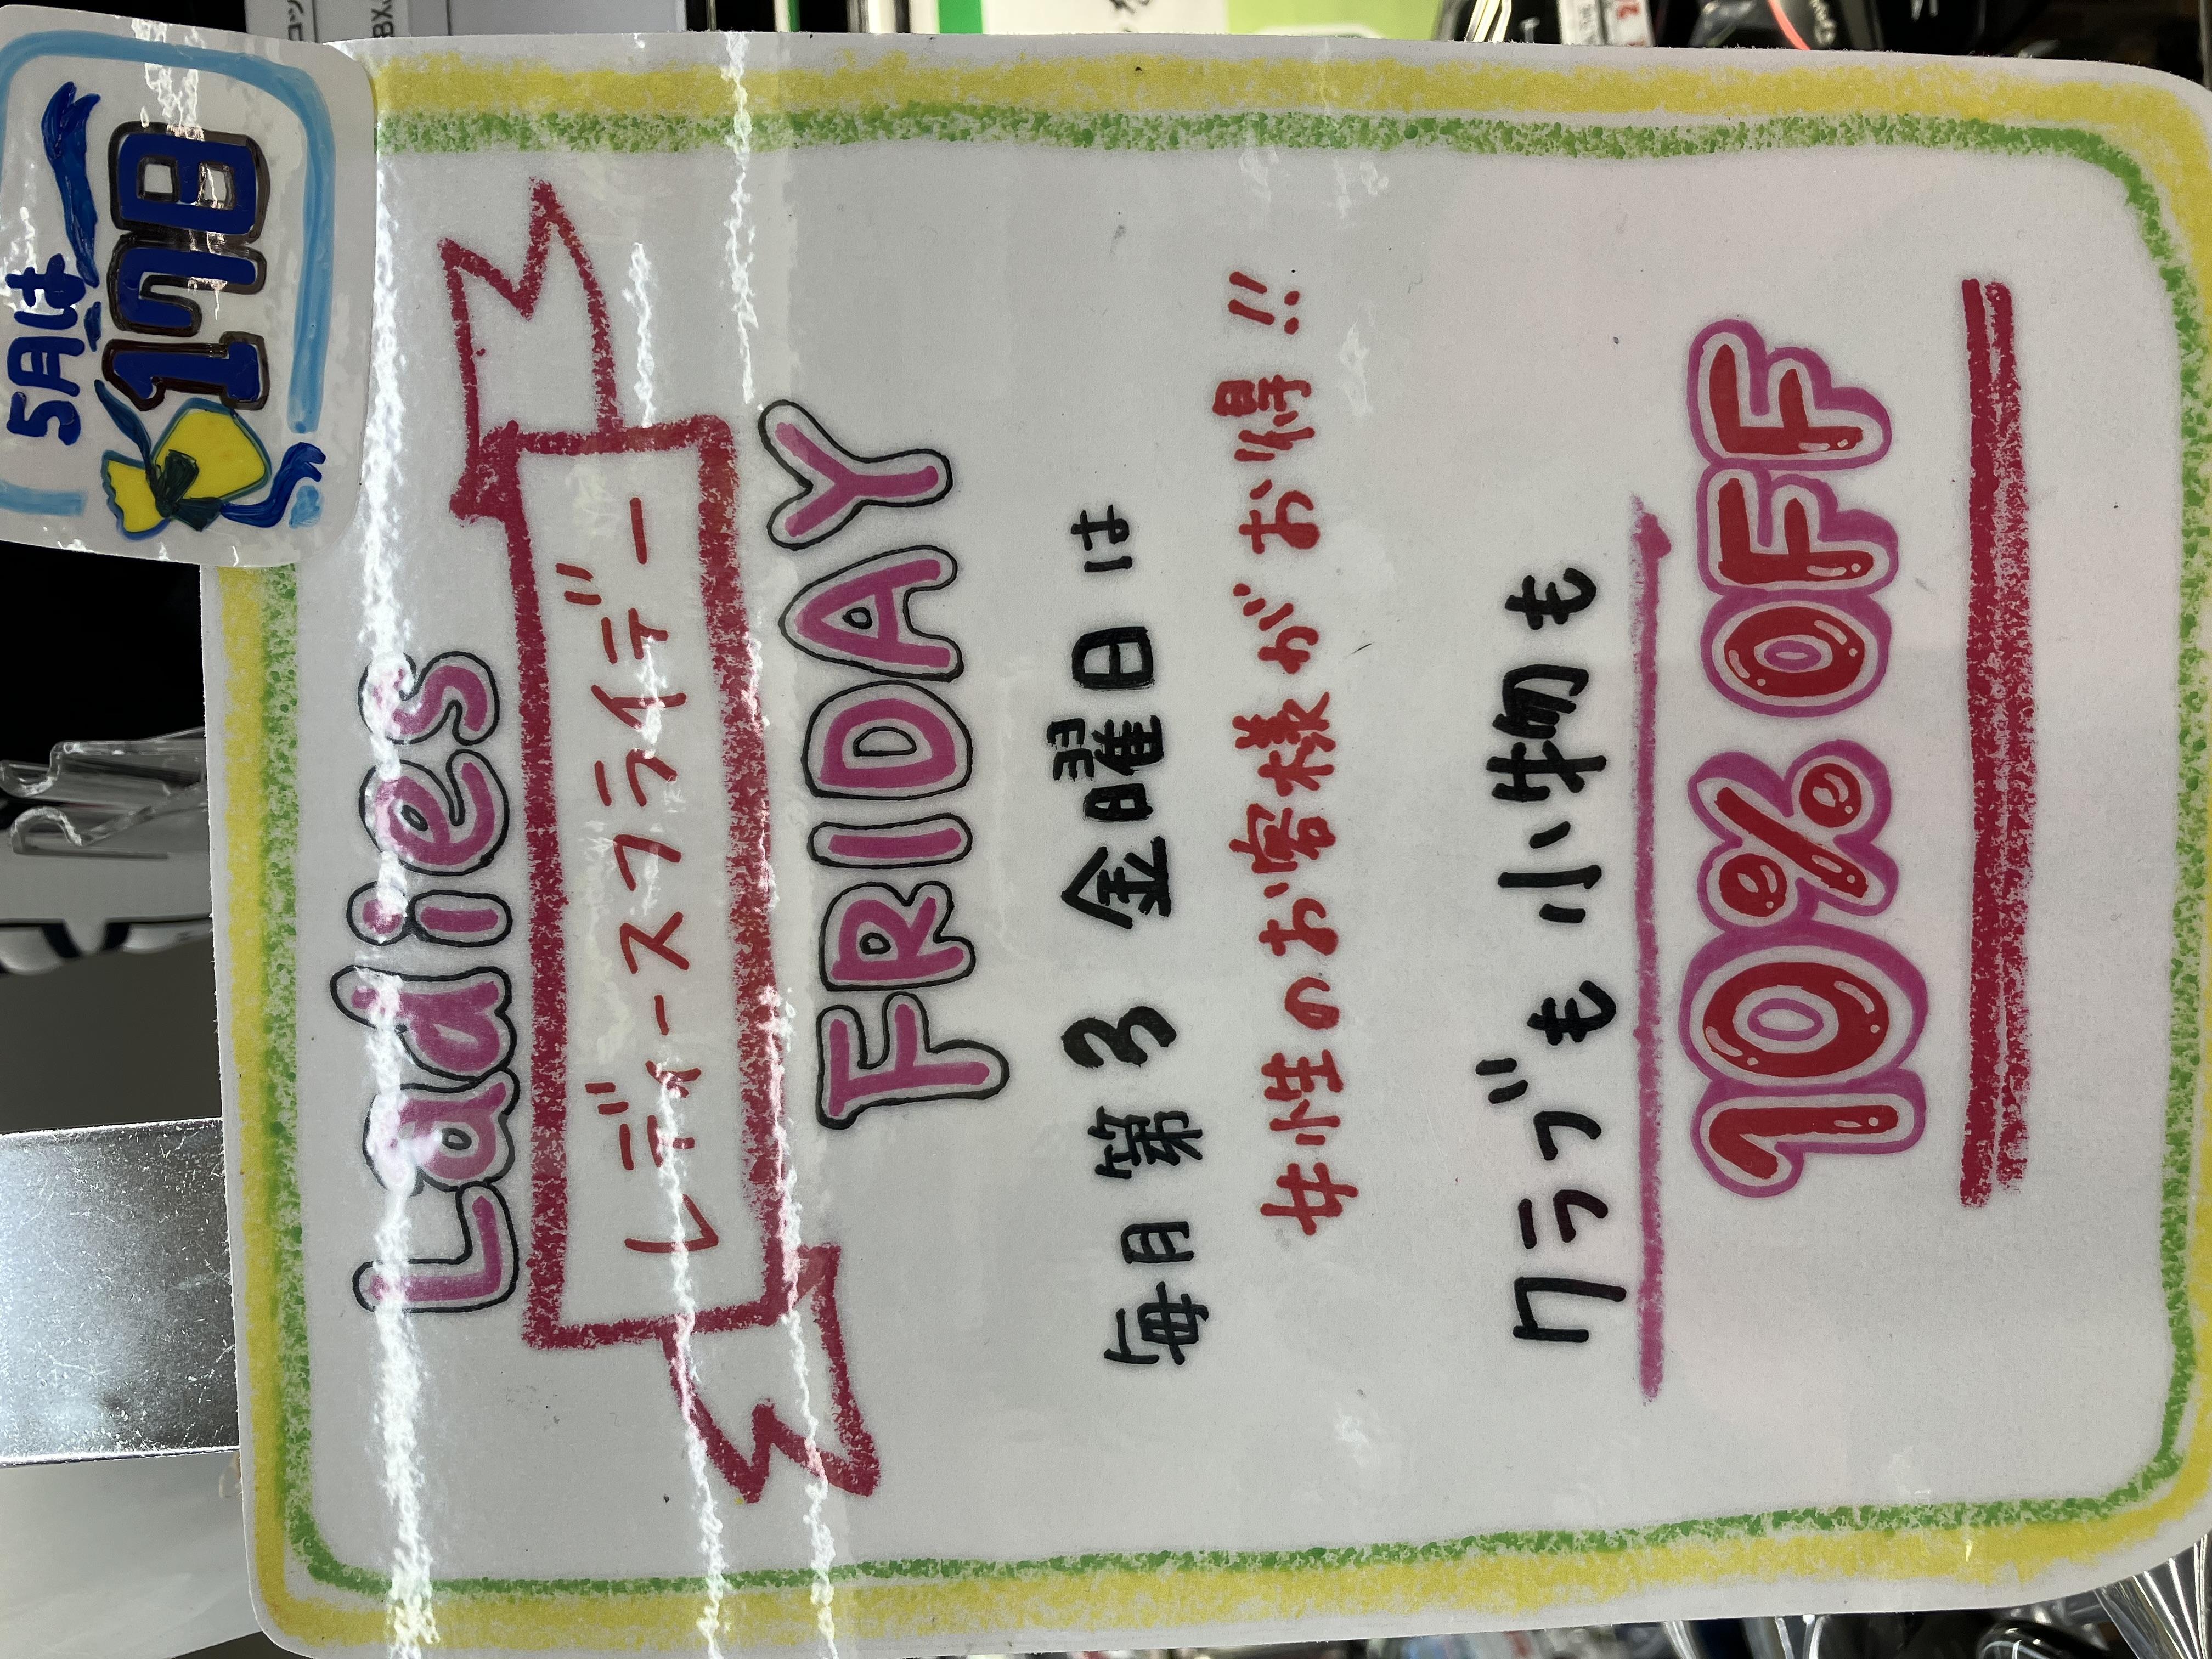 5月は
17日
Ladies
レディースフライデー
FRIDAY
毎月第3金曜日は
女性のお客様がお得!!
クラブも小物も
10% OFF